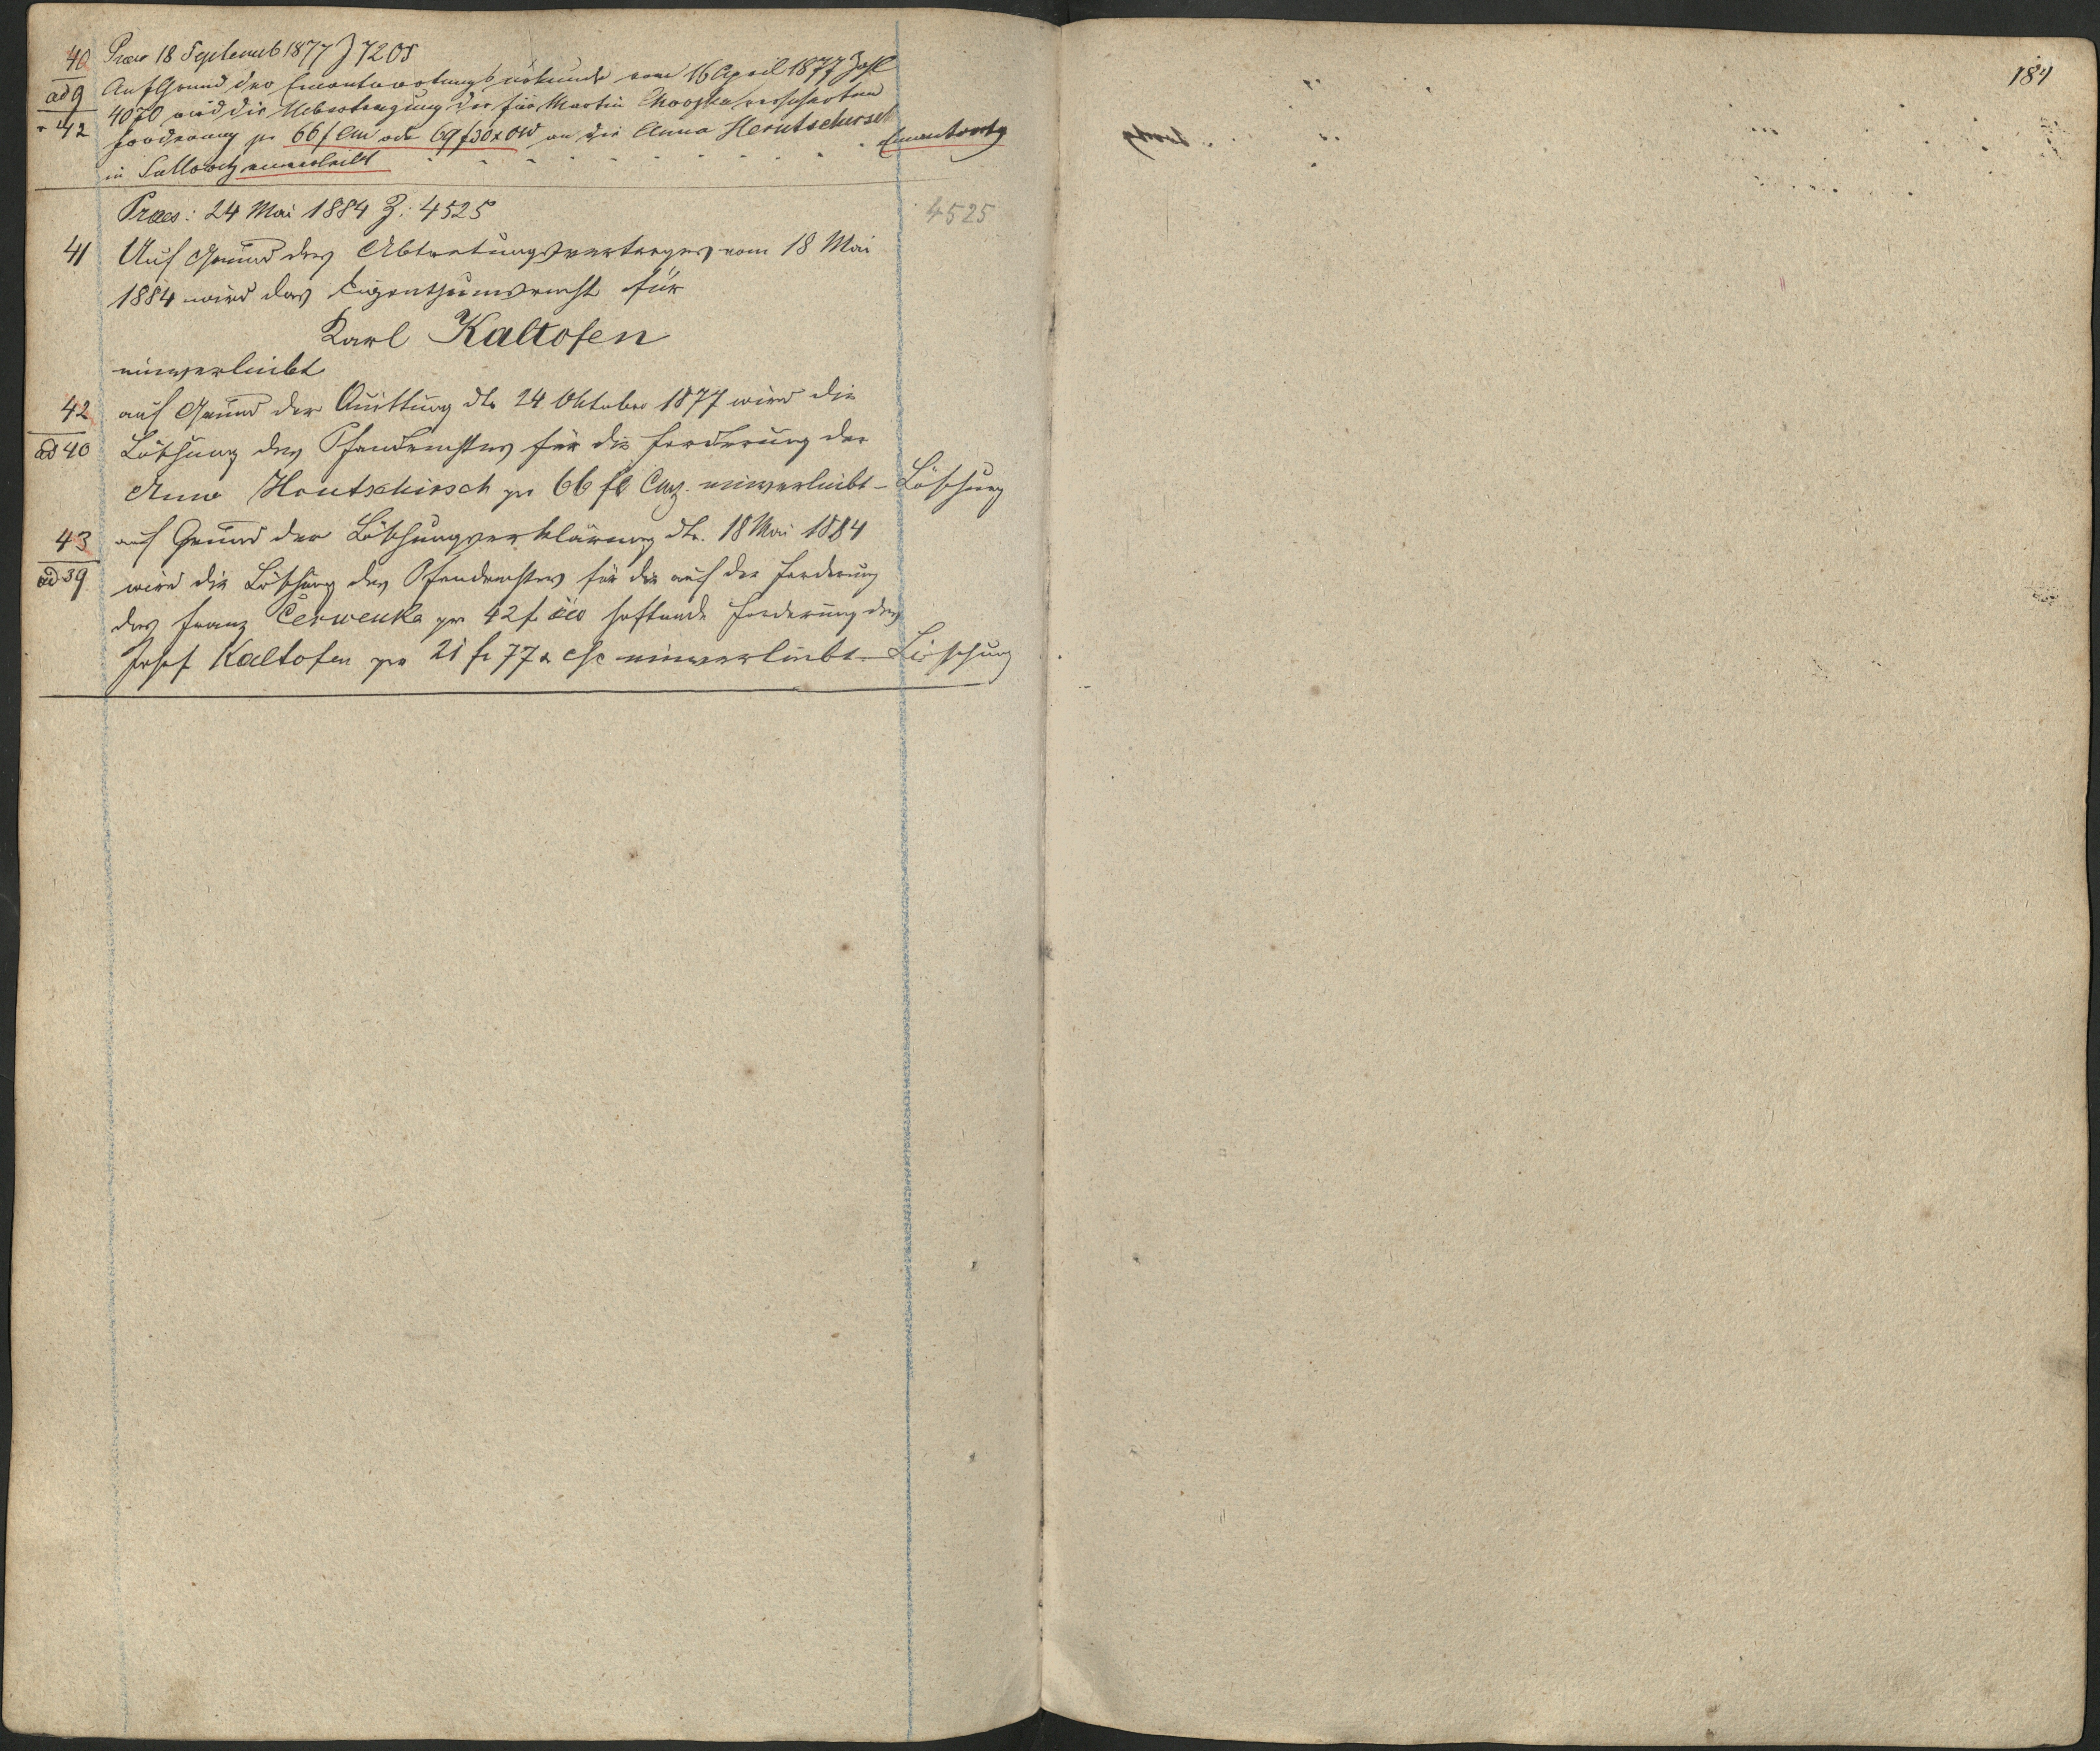 40 Praes 18 Septemb 1877 Z 7205
ad 9 Auf Grund der Einantwortungsurkunde vom 16 April 1877 Zahl
42 4070 wird die Uebertragung der für Martin versicherten
Forderung pr 66 f CM oder 69 f 30 x ÖW an die Anna Herutschirsch
in Sullowitz einverleibt - - - - - - - - Einantwortg
Praes: 24 Mai 1884 Z: 4525 4525
41 Auf Grund des Abtretungsvertrages vom 18 Mai
1884 wird das Eigenthumsrecht für
Karl Kaltofen
einverleibt
42 auf Grund der Quittung dto 24 Oktober 1877 wird die
ad 40 Löschung des Pfandrechtes für die Forderung der
Anna Hrutschirsch pr 66 fl Cmz. einverleibt – Löschung
43 auf Grund der Löschungserklärung dto. 18 Mai 1884
ad 39 wird die Löschung des Pfandrechtes für die auf der Forderung
des Franz Čerwenka pr 42 f öw haftende Forderung des
Josef Kaltofen pr 21 f 77 x csc einverleibt – Löschung
184